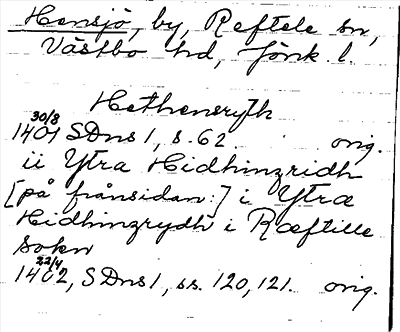 Hensjö, by, Reftele sn,
Västbo hd, Jönk. l.
Hethensryth
30/8
1401 SDns 1, s. 62. orig.
ii Ytra Hidhinzridh
[på frånsidan:] i Ytra
Hidhinzrydh i Ræftille
sokn
22/4
1402, SDns 1, ss. 120, 121. orig.